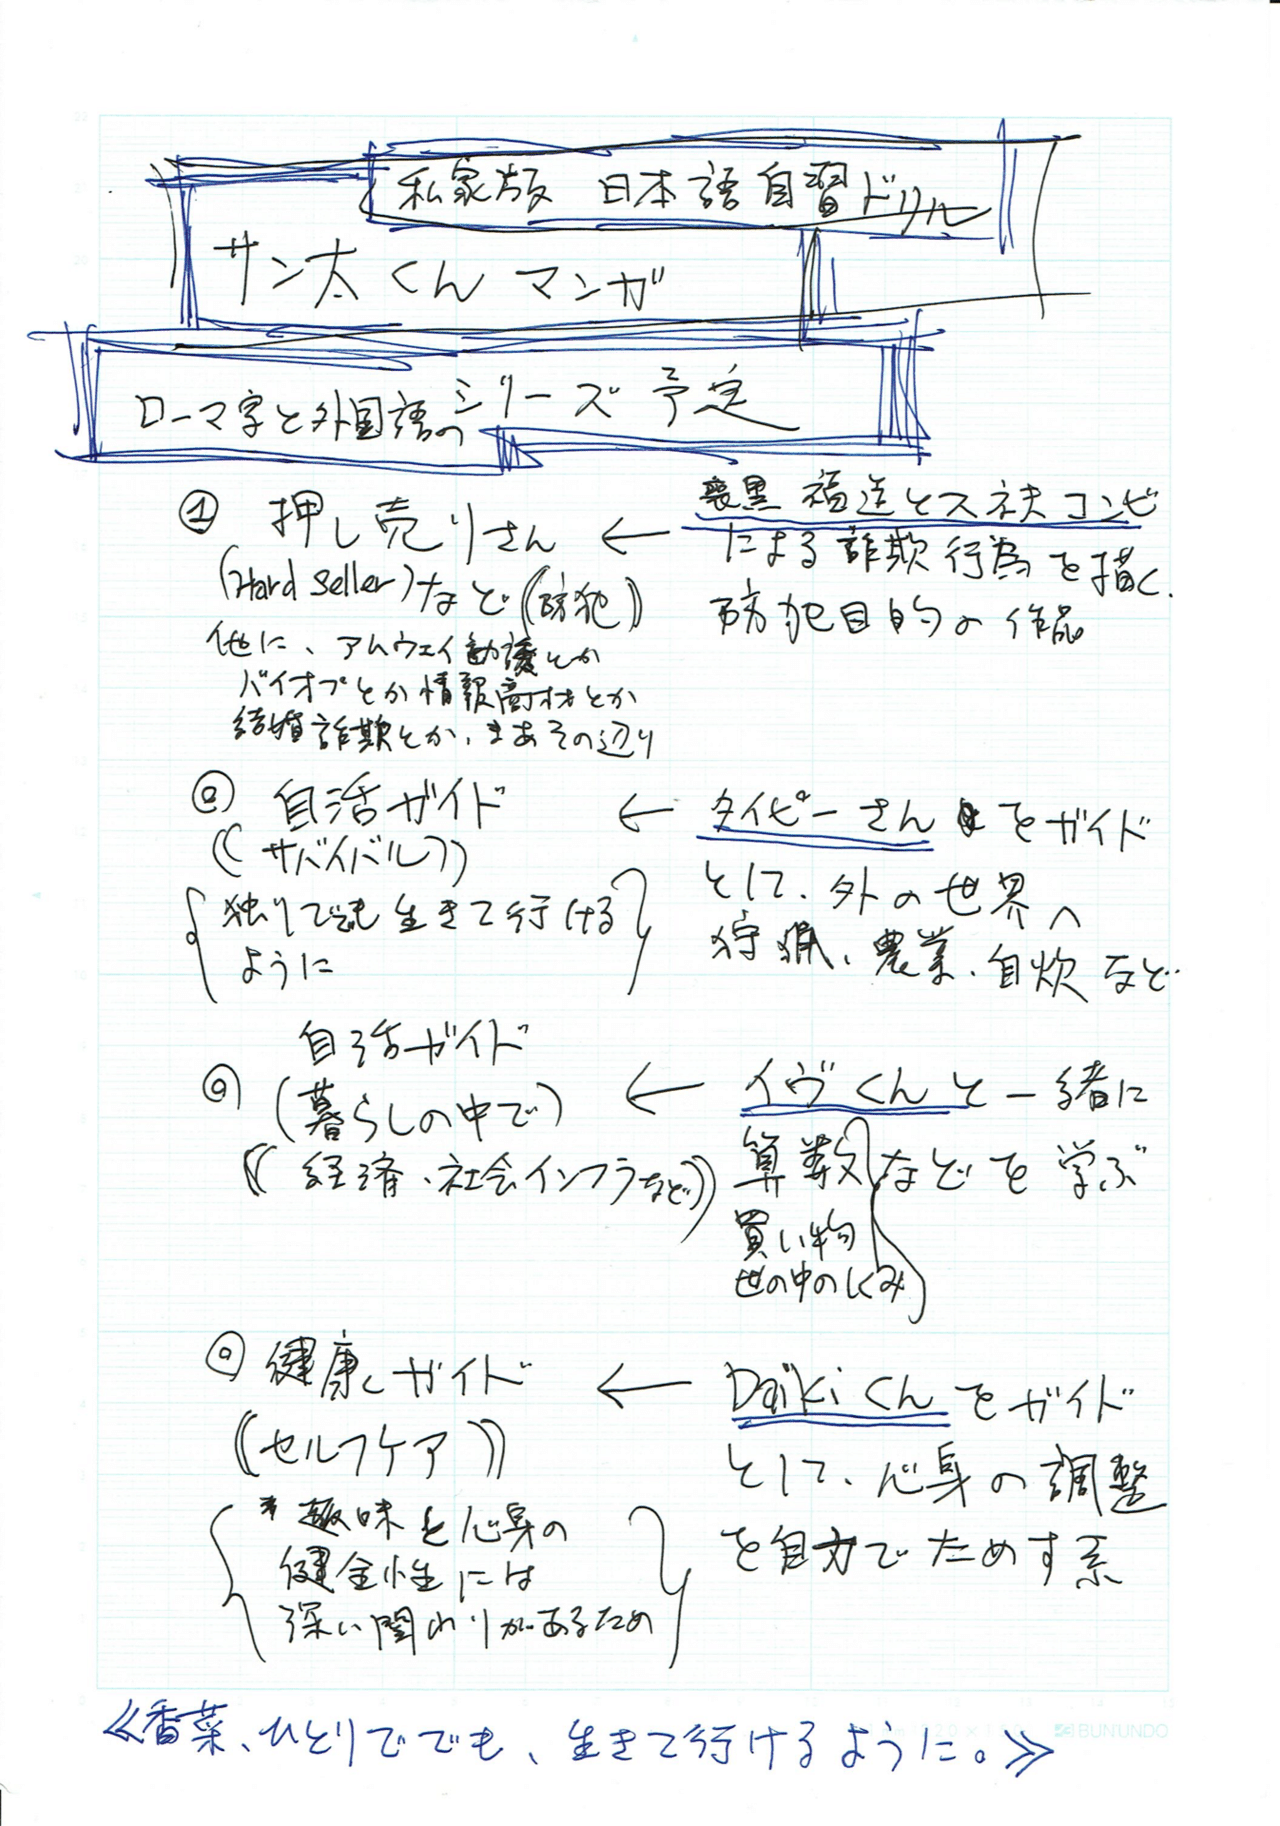 私家版 日本語自習ドリル
サン太くん マンガ
ローマ字と外国語のシリーズ予定
① 押し売りさん ← 喪黒福造とスネ夫コンビ
(Hard Seller)など((防犯)) による詐欺行為を描く、
防犯目的の作品
他に、アムウェイ勧誘とか
バイオプとか情報商材とか
結婚詐欺とか、まあその辺り
自活ガイド ← タイピーさん をガイド
((サバイバル)) として、外の世界へ
独りででも生きて行ける 狩猟、農業、自炊など
ように
自活ガイド
(暮らしの中で) ← イヴくんと一緒に
((経済、社会インフラなど)) 算数などを学ぶ
買い物
世の中のしくみ
健康ガイド ← Daikiくんをガイド
((セルフケア)) として、心身の調整
*趣味と心身の を自力でためす系
健全性には
深い関わりがあるため
≪香菜、ひとりででも、生きて行けるように。≫
BUNUNDO